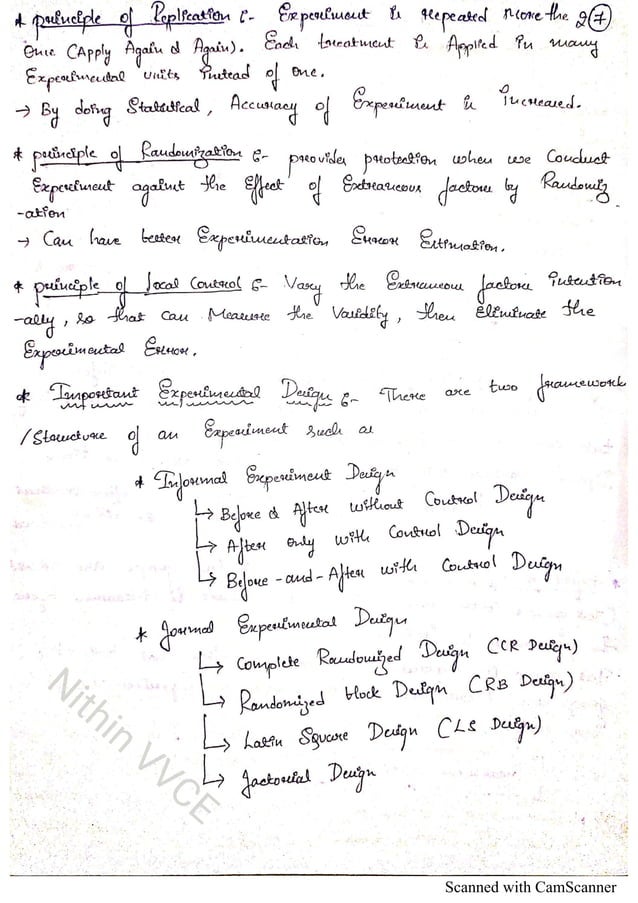 * principle of Replication :- Experiment is repeated more the 27
Once (Apply Again & Again). Each treatment is Applied in many
Experimental units instead of one.
→ By doing Statistical, Accuracy of Experiment is Increased.
* principle of Randomization :- provides protection when we Conduct
Experiment against the Effect of Extraneous factors by Randomiz
-ation
→ Can have better Experimentation Error Estimation.
* principle of local Control :- Vary the Extraneous factors intention
-ally, so that can Measure the Validity, then Eliminate the
Experimental Error.
* Important Experimental Design :- There are two framework
/Structure of an Experiment such as
* Informal Experiment Design
↳ Before & After without Control Design
↳ After only with Control Design
↳ Before-and-After with Control Design
* formal Experimental Design
↳ Complete Randomized Design (CR Design)
↳ Randomized block Design (RB Design)
↳ Latin Square Design (LS Design)
↳ factorial Design
Nithin VVCE
Scanned with CamScanner